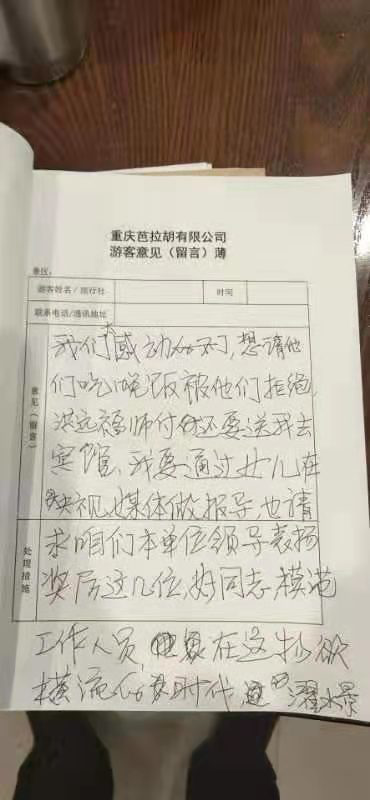 重庆芭拉胡有限公司
游客意见（留言）薄
景区：
游客姓名/旅行社
时间
联系电话/通讯地址
意见（留言）
我们太感动的不了，想请他
们吃晚饭被他们拒绝，
洪远福师付还要送我去
宾馆、我要通过女儿在
央视媒体做报导，也请
处理措施
求咱们本单位领导表扬
奖厉这几位，好同志、模范
工作人员，在这物欲
横流的时代，濯水景